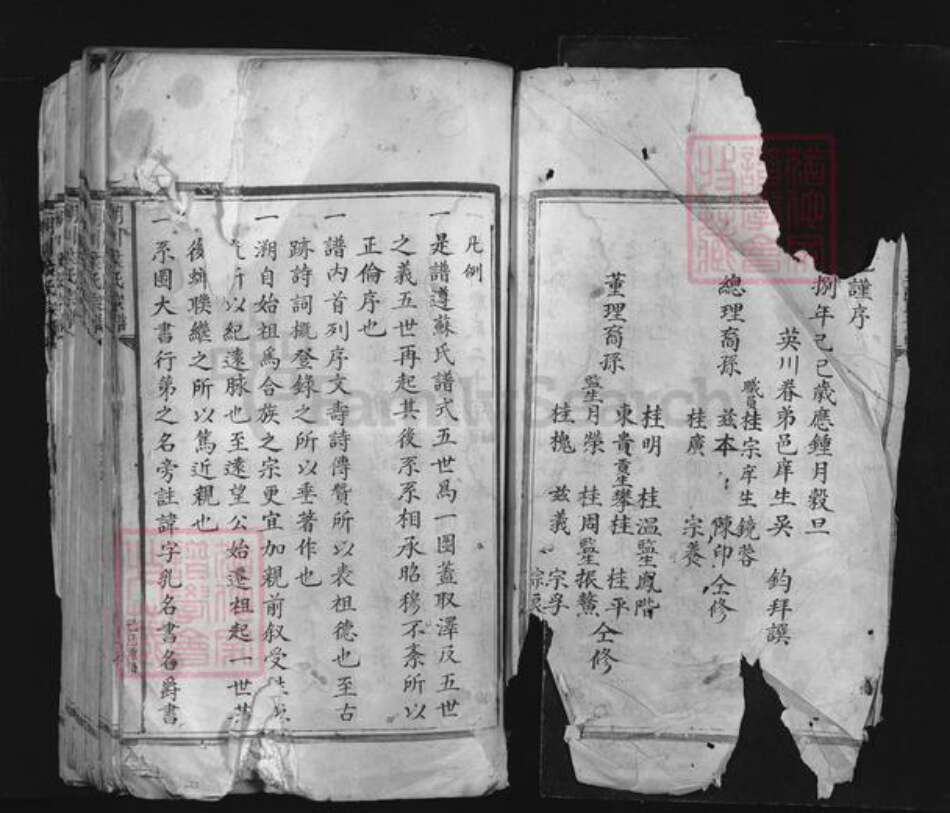 謹序
捌年己巳歲應鍾月穀旦
英川眷弟邑庠生吳 鈞拜譔
總理裔孫
職員桂宗 庠生鏡蓉
兹本 陳印 仝修
桂廣 宗養
董理裔孫
桂明 桂溫 監生鳳階
東貴 貢生攀桂 桂平
監生月榮 桂周 監生振鰲 仝修
桂槐 兹義 宗孚
凡例
一是譜遵蘇氏譜式五世為一圖蓋取澤及五世
之義五世再起其後系系相承昭穆不紊所以
正倫序也
一譜內首列序文壽詩傳贊所以表祖德也至古
跡詩詞概登錄之所以垂著作也
一溯自始祖為合族之宗更宜加親前叙受姓
所以紀遠脉也至遠望公始遷祖起一世
後聯繼之所以篤近親也
一系圖大書行第之名旁註諱字乳名書名爵書